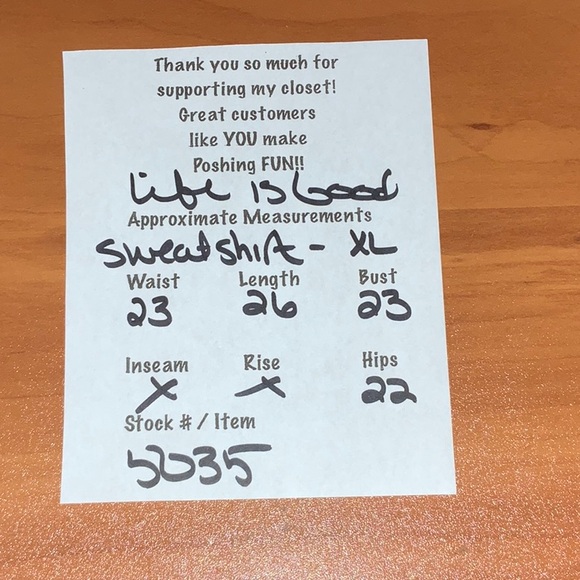 Thank you so much for
supporting my closet!
Great customers
like YOU make
Poshing FUN!!
Life is Good
Approximate Measurements
Sweatshirt - XL
Waist Length Bust
23 26 23
Inseam Rise Hips
X X 22
Stock # / Item
5035